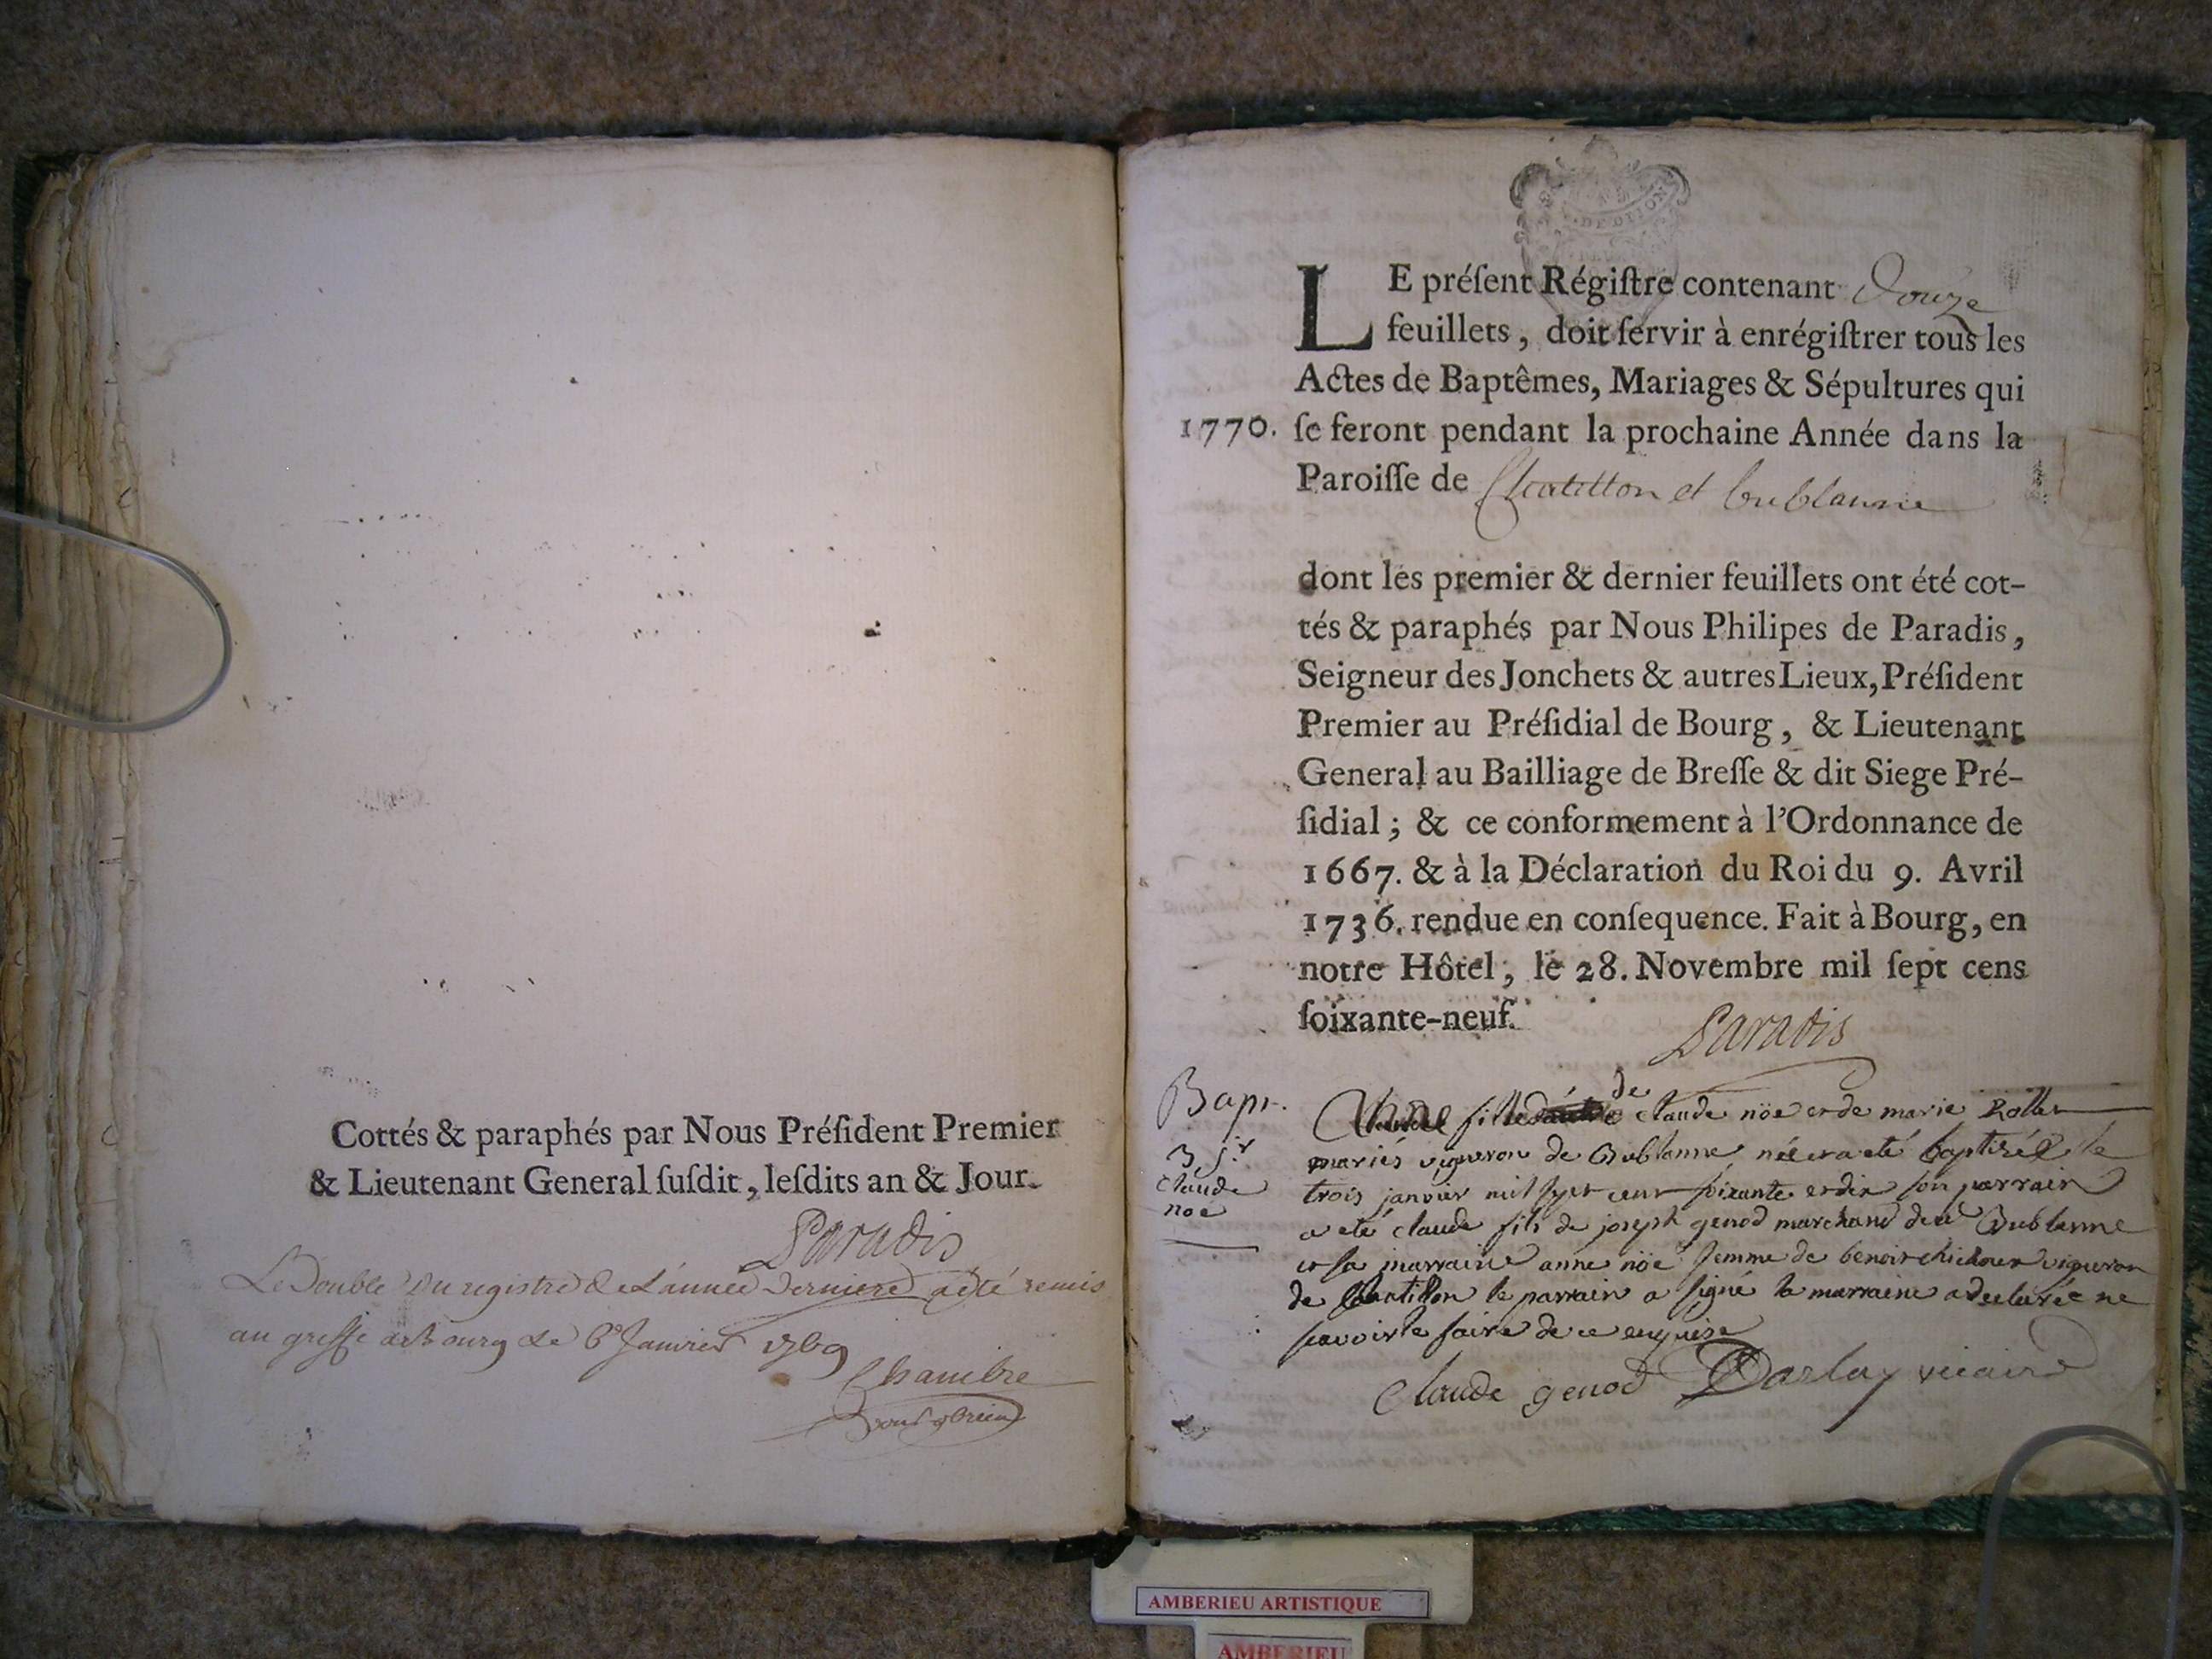 Cottés & paraphés par Nous Préſident Premier
& Lieutenant General ſuſdit, leſdits an & Jour.
Paradis
Le Double du registre de L'année derniere a été remis
au greffe de Bourg Le 6e Janvier 1769
Chambre
DE DIJON
LE préſent Régiſtre contenant Douze
feuillets, doit ſervir à enrégiſtrer tous les
Actes de Baptêmes, Mariages & Sépultures qui
1770. ſe feront pendant la prochaine Année dans la
Paroiſſe de Chatillon et bublanne
dont les premier & dernier feuillets ont été cot-
tés & paraphés par Nous Philipes de Paradis,
Seigneur des Jonchets & autres Lieux, Préſident
Premier au Préſidial de Bourg, & Lieutenant
General au Bailliage de Breſſe & dit Siege Pré-
ſidial; & ce conformement à l'Ordonnance de
1667. & à la Déclaration du Roi du 9. Avril
1736. rendue en conſequence. Fait à Bourg, en
notre Hôtel, le 28. Novembre mil ſept cens
ſoixante-neuf.
Paradis
Bapt.
3 jr
claude
noé
fille de claude nöe et de marie Rollet
mariés vigneron de Bublanne née et a eté baptisée le
trois janvier mil sept cent soixante et dix son parrain
a eté claude fils de joseph genod marchand de Bublanne
et sa marraine anne nöe femme de benoit vigneron
de Chatillon le parrain a signé la marraine a declarée ne
scavoir le faire de ce enquise
claude genod Darlay vicaire
AMBERIEU ARTISTIQUE
AMBERIEU